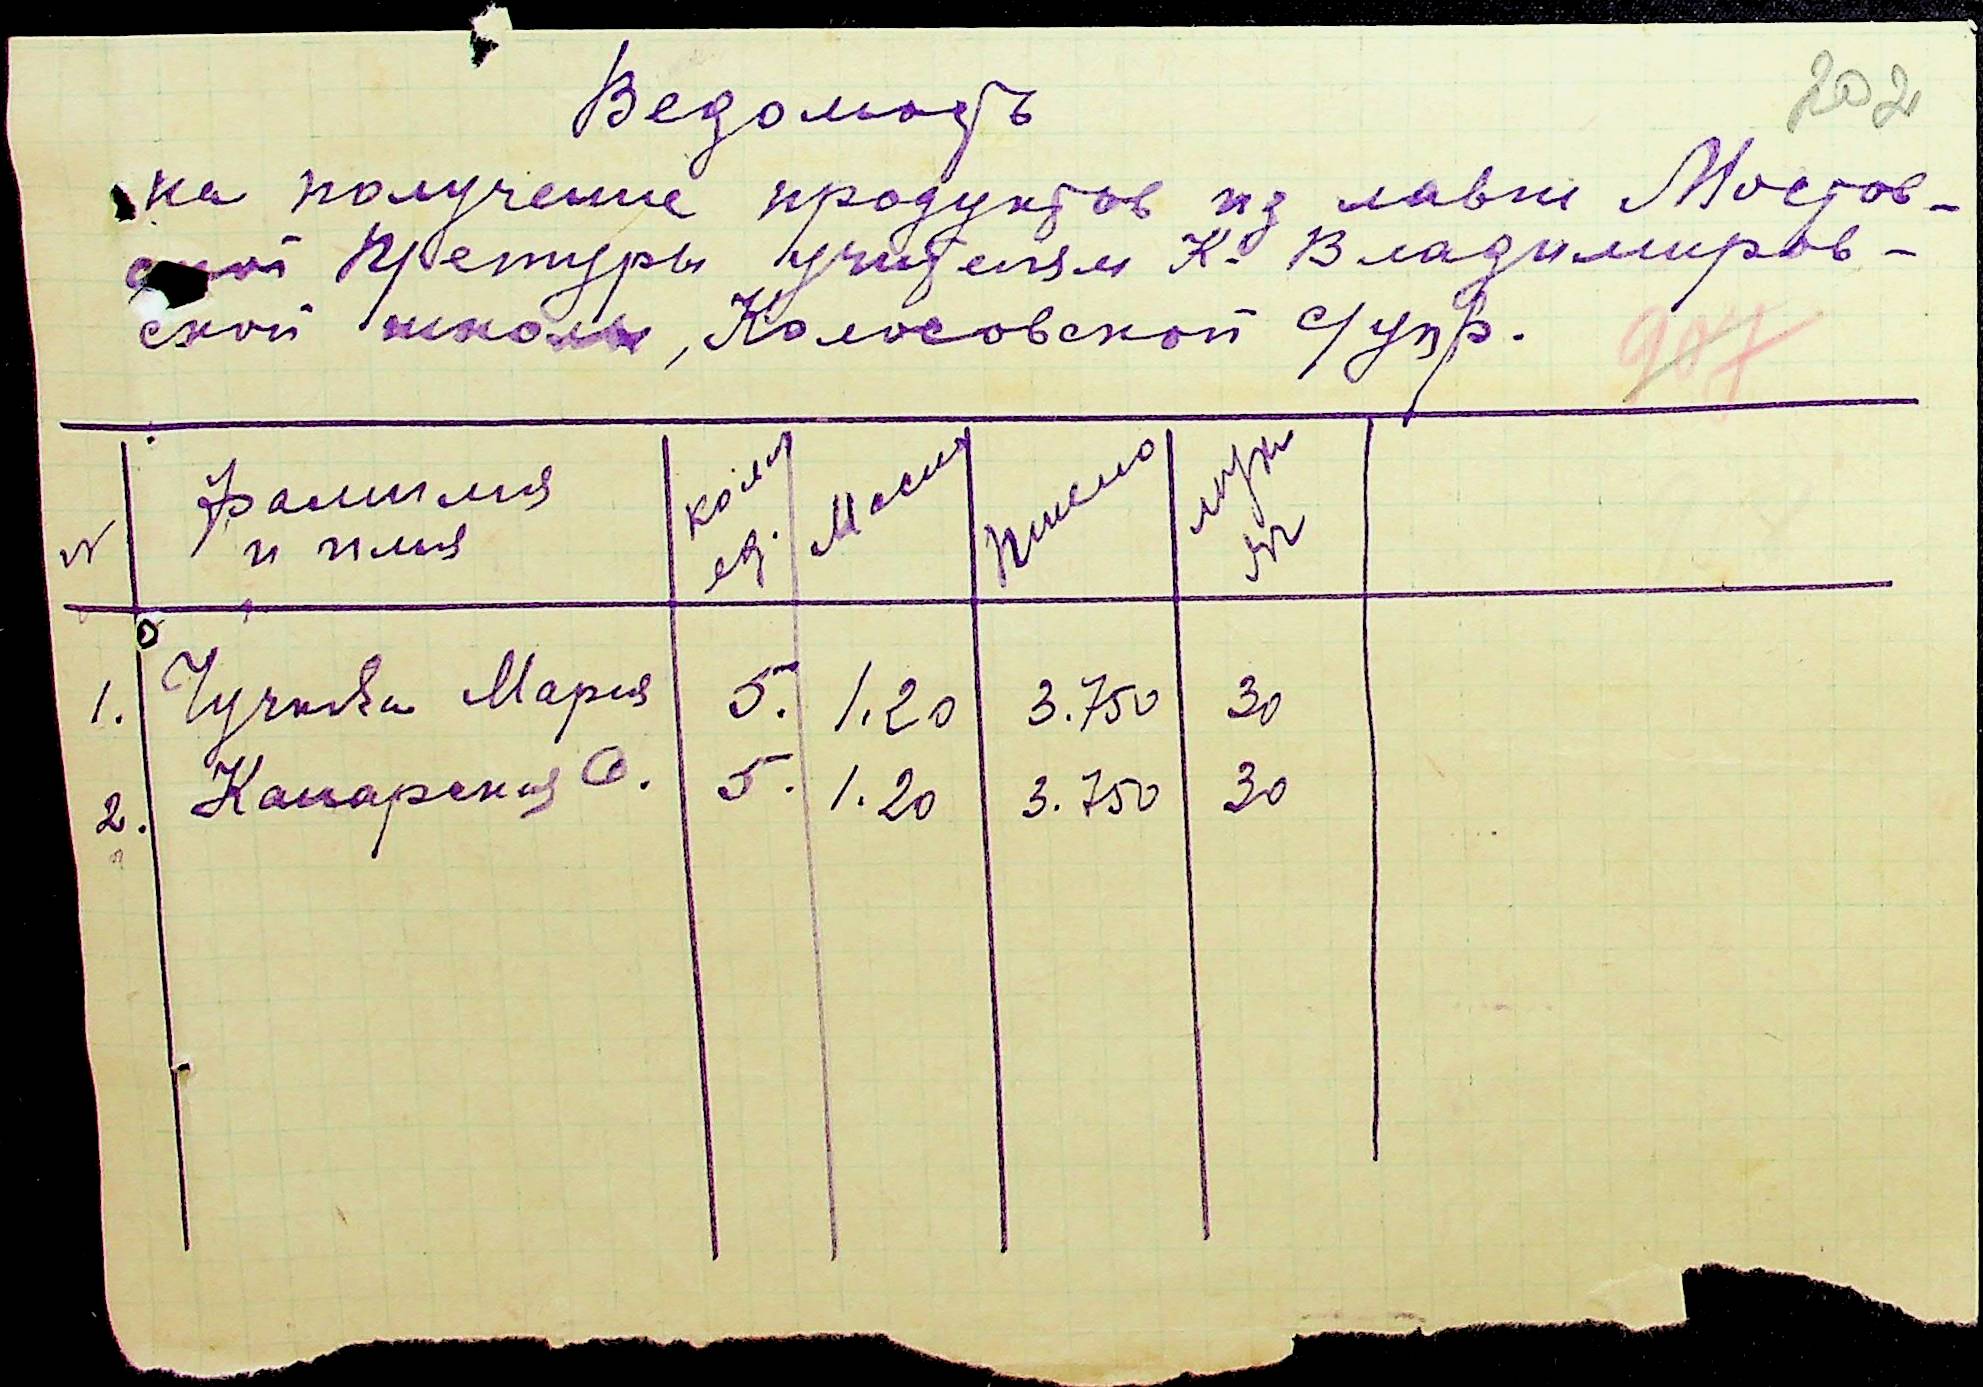 202
Ведомость
на получение продуктов из лавки Мостов-
ской Претуры учителям К. Владимиров-
ской школы, Колосовской с/упр.
907
N Фамилия и имя колич ед. Масла Пшено муки кг
1. Чучкова Мария 5. 1.20 3.750 30
2. Канарская О. 5. 1.20 3.750 30